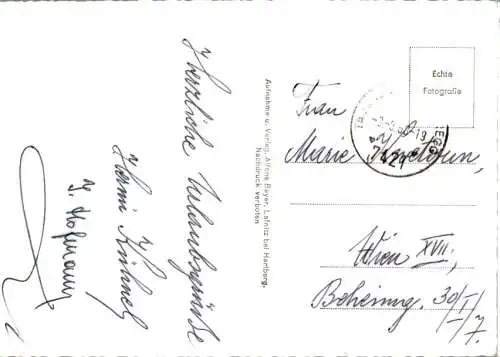 Herzliche Urlaubsgrüße
Hermi Kühnel
J. Hofmann
Aufnahme u. Verlag, Alfons Beyer, Lafnitz bei Hartberg.
Nachdruck verboten
Echte
Fotografie
Frau
Marie
Wien XVII.,
30/I/
I/7.